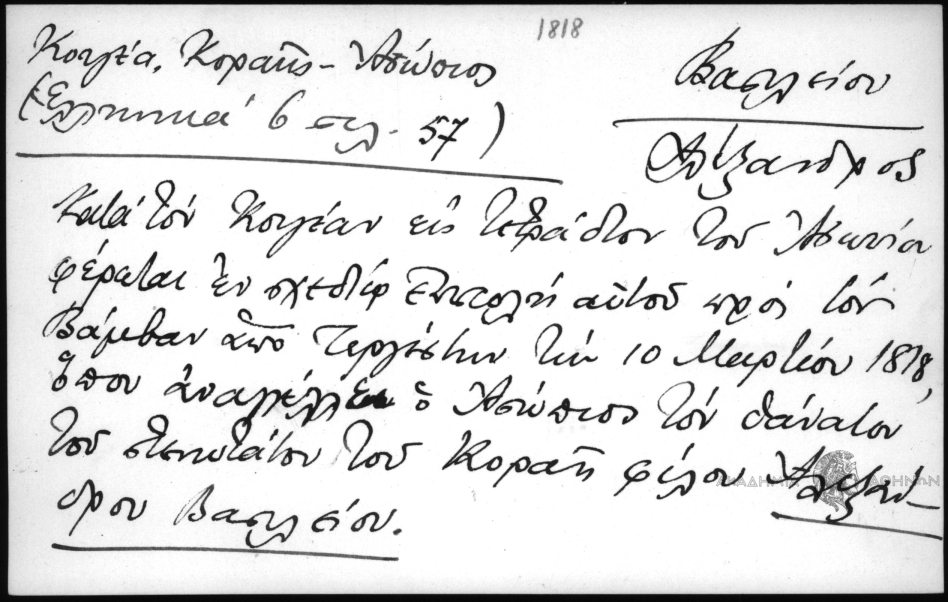 1818
Κουγέα, Κοραῆς - Ἀσώπιος
(Ἑλληνικά 6 σελ. 57)
Βασιλείου
Ἀλέξανδρος
Κατά τόν Κουγέαν εἰς τετράδιον τοῦ Ἀσωπίου
φέρεται ἐν σχεδίῳ ἐπιστολή αὐτοῦ πρός τόν
Βάμβαν ἀπό Τεργέστην τήν 10 Μαρτίου 1818,
ὅπου ἀναγγέλλει ὁ Ἀσώπιος τόν θάνατον
τοῦ στενωτάτου τοῦ Κοραῆ φίλου Ἀλεξάν-
δρου Βασιλείου.
ΑΚΑΔΗΜΙΑ ΑΘΗΝΩΝ